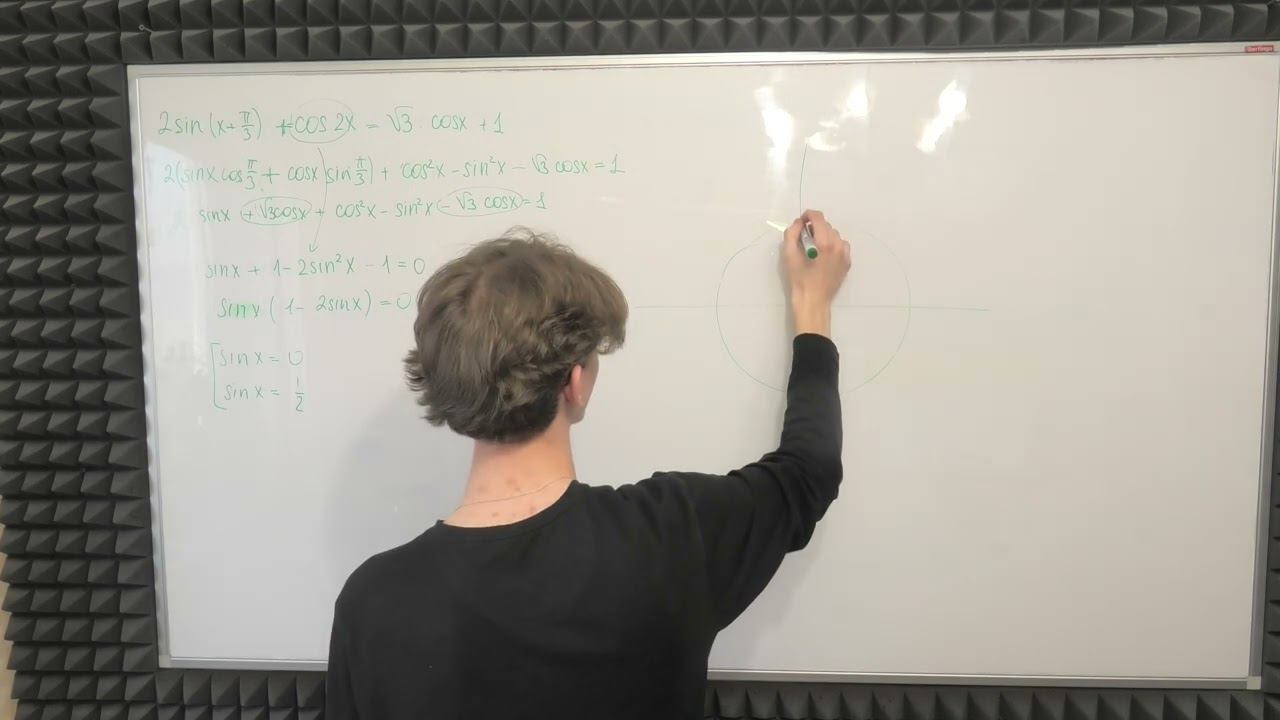 2sin (x+ π/3) + cos 2x = √3 · cosx + 1
2(sinx cos π/3 + cosx sin π/3) + cos²x - sin²x - √3 cosx = 1
sinx + √3cosx + cos²x - sin²x - √3 cosx = 1
sinx + 1 - 2sin²x - 1 = 0
sinx ( 1 - 2sinx) = 0
sinx = 0
sinx = 1/2